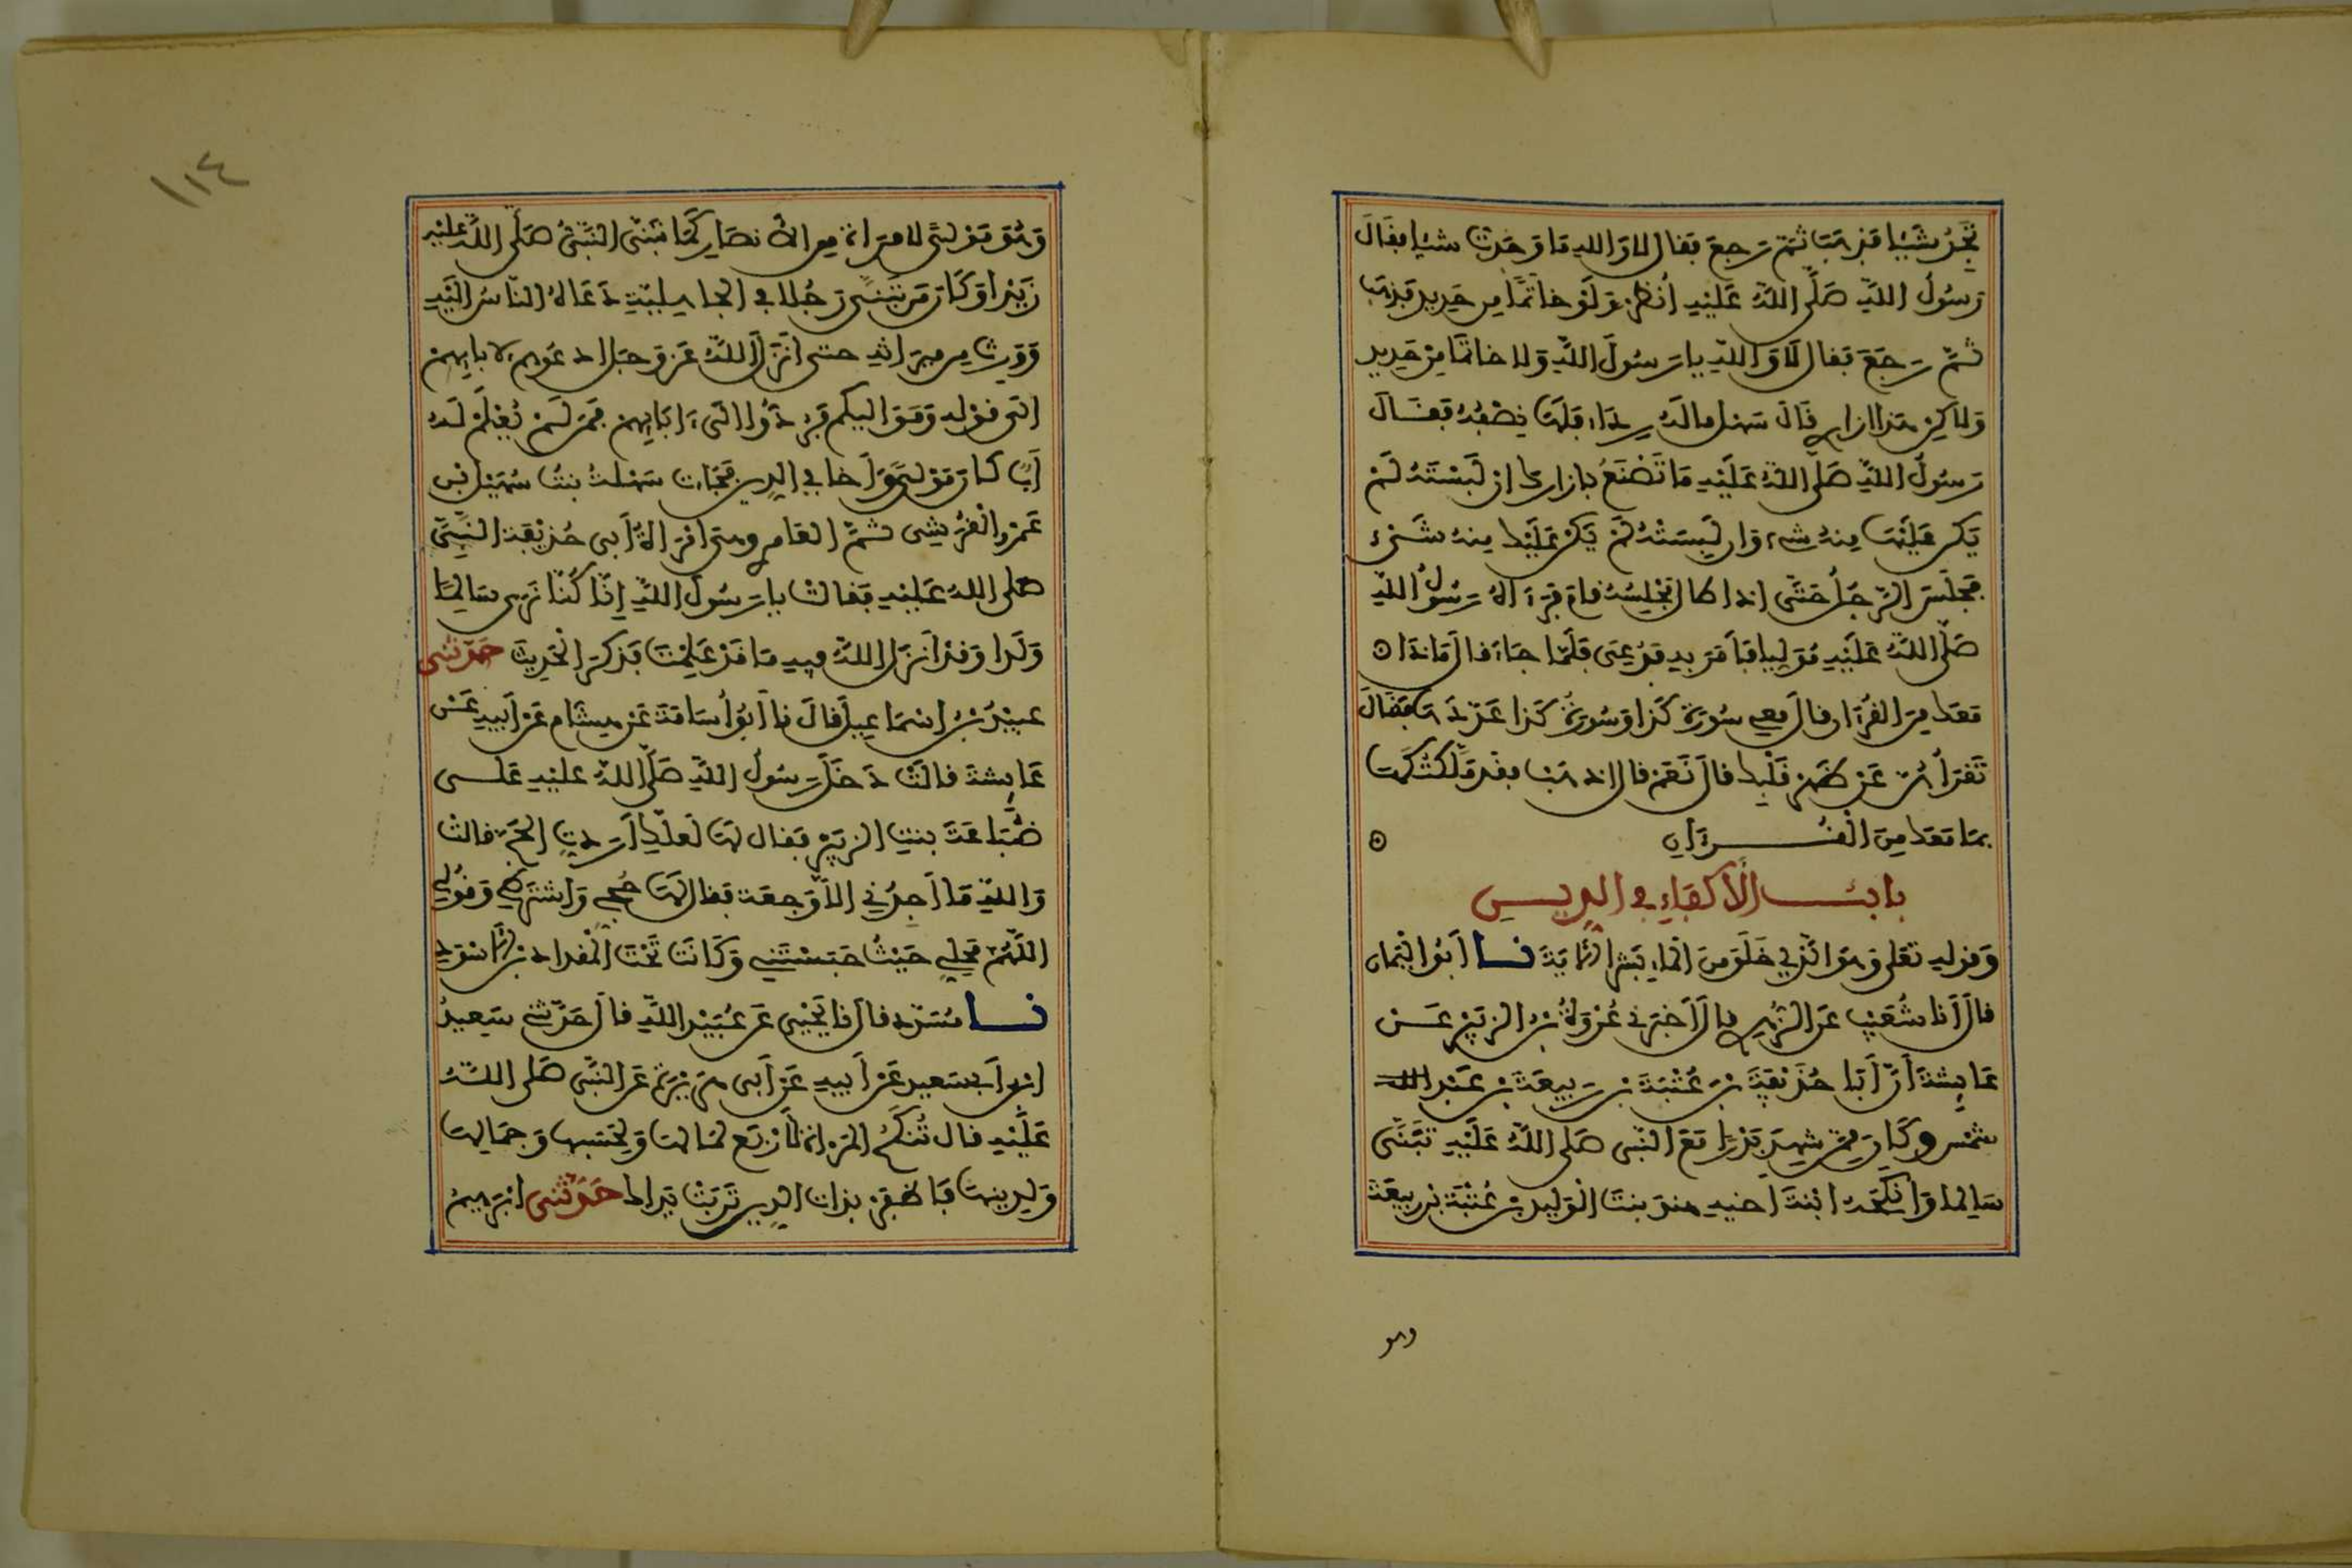 تَجِدُ شَيْئا فذهَبَ ثمّ رَجعَ فقال لا وَالله ما وَجَدتّ شيْئا فقالَ
رَسُولُ اللَّهِ صَلَّى اللَّهُ عَلَيْهِ انْظُرْ وَلَوْ خاتمًا مِن حَدِيد فذهَب
ثمّ رَجَعَ فقال لَا وَاللَّهِ يا رَسُولَ اللَّهِ وَلا خاتمًا مِنْ حَدِيد
وَلاكِنْ هذا إزاري قَالَ سَهْل ما لَهُ رِدَاء فلَهَا نِصْفُهُ فقَالَ
رَسُولُ اللَّهِ صَلَّى اللَّهُ عَلَيْهِ مَا تَصْنَعُ بإزارك إن لَبِسْتَهُ لَمْ
يَكن عَلَيْهَا مِنهُ شيء وَإن لَبِسَتْهُ لَمْ يَكنْ عَلَيْك مِنهُ شَىْء
فجلَسَ الرَّجُلُ حَتَّى إذا طال مَجْلِسُهُ قامَ فَرَءَاهُ رَسُولُ اللَّهِ
صَلَّى اللَّهُ عَلَيْهِ مُوَلِّيا فأَمَرَ بهِ فدُعِىَ فلَمّا جَاءَ قال مَاذَا
مَعَك مِنَ القُرْءَان قال مَعِي سُورَة كَذا وَسُورَةُ كَذا عَدّدَهَا فقالَ
تَقْرَأُهُنّ عَنْ ظَهْرِ قَلْبِك قالَ نَعَمْ قال اذهَبْ فقد مَلَّكْتُكَهَا
بمَا مَعَك مِنَ الْقُرْءَانِ
بابُ الأَكْفَاءِ في الدِّينِ
وَقوْلِهِ تعَلى وَهوَ الذِي خَلَقَ مِنَ الْمَاءِ بَشَرا الآيَةَ نا أَبُو الْيَمَان
قالَ أنا شُعَيْب عَن الزُّهْرِي قالَ أَخبَرَنِي عُرْوَةُ بْنُ الزبَيْرِ عَنْ
عَائِشَةَ أَنَّ أَبَا حُذَيْفَةَ بْنَ عُتْبَةَ بْنِ رَبِيعَةَ بْنِ عَبْدِ الله
شمْس وكَانَ مِمَّنْ شَهِدَ بَدْرًا مَعَ النَّبِى صَلى اللَّهُ عَلَيْهِ تَبَنَّى
سَالِما وَأنكَحَهُ ابْنَةَ أخِيهِ هِندَ بِنتَ الْوَلِيدِ بْنِ عُتْبَةَ بْنِ رَبِيعَة
وهو
١١٤
وَهُوَ مَوْلى لامْرَأة مِن الأنصَار كَمَا تَبَنَّى النَّبِيُّ صَلَّى اللَّهُ عَلَيْهِ
زَيْدا وَكَانَ مَن تَبَنَّى رَجُلا في الجَاهِلِيَّةِ دَعَاهُ النّاسُ إلَيْهِ
وَوَرِثَ مِن مِيرَاثِهِ حتى أَنْزَلَ اللَّهُ عَزّ وَجَل ادعُوهُم لآبَائِهِمْ
إلَى قوْلِهِ وَمَوَاليكم فرُدُّوا إلَى ءَابَائِهِم فمَن لَمْ يُعْلَمْ لَهُ
أَبٌ كانَ مَوْلىً وَأخا في الدين فجَاءَت سَهْلَةُ بِنتُ سُهَيْل بْنِ
عَمْرو الْقُرَشِي ثُمَّ العَامِري وهي امْرَأةُ أَبِي حُذَيْفَة النَّبِىَّ
صَلى اللهُ عَلَيْهِ فقالتْ يا رَسُولَ اللَّهِ إنّا كُنّا نَرَى سَالِمًا
وَلَدا وَقدْ أَنزَلَ اللَّهُ فِيهِ مَا قدْ عَلِمْتَ فذَكَرَ الْحَدِيثَ حَدّثني
عبَيْدُ بْنُ إسْمَاعِيلَ قالَ نا أبُو أُسَامَةَ عَن هِشَام عَنْ أَبِيهِ عَنْ
عَائِشَة قالَتْ دَخَلَ رَسُولُ اللَّهِ صَلَّى اللَّهُ عليْهِ عَلَى
ضُبَاعَةَ بِنتِ الزبَيْرِ فقال لهَا لَعَلَّكِ أَرَدتِ الحَجّ قالتْ
وَاللَّهِ مَا أَجِدُنِي إلّا وَجِعَة فقال لَهَا حُجِّي وَاشتَرِطي وَقُولِي
اللَّهُمَّ مَحِلِّي حَيْثُ حَبَسْتَنِي وَكَانَتْ تَحْتَ الْمِقْدادِ بْنِ الْأَسْوَد
نا مُسَدّد قال نا يَحْيَى عَن عُبَيْدِ اللَّهِ قالَ حَدّثنِي سَعِيدُ
ابْنُ أَبِي سَعِيد عَنْ أَبِيهِ عَنْ أَبى هُرَيْرَة عَن النَّبِى صَلى اللَّهُ
عَلَيْهِ قال تُنكَحُ المَرْأة لأَرْبَع لمَالِهَا وَلِحَسَبِهَا وَجمَالِهَا
وَلِدِينِهَا فاظْفَرْ بذَاتِ الدِّينِ تَرِبَتْ يَدَاك حَدَّثَنِي إبْرَهِيمُ